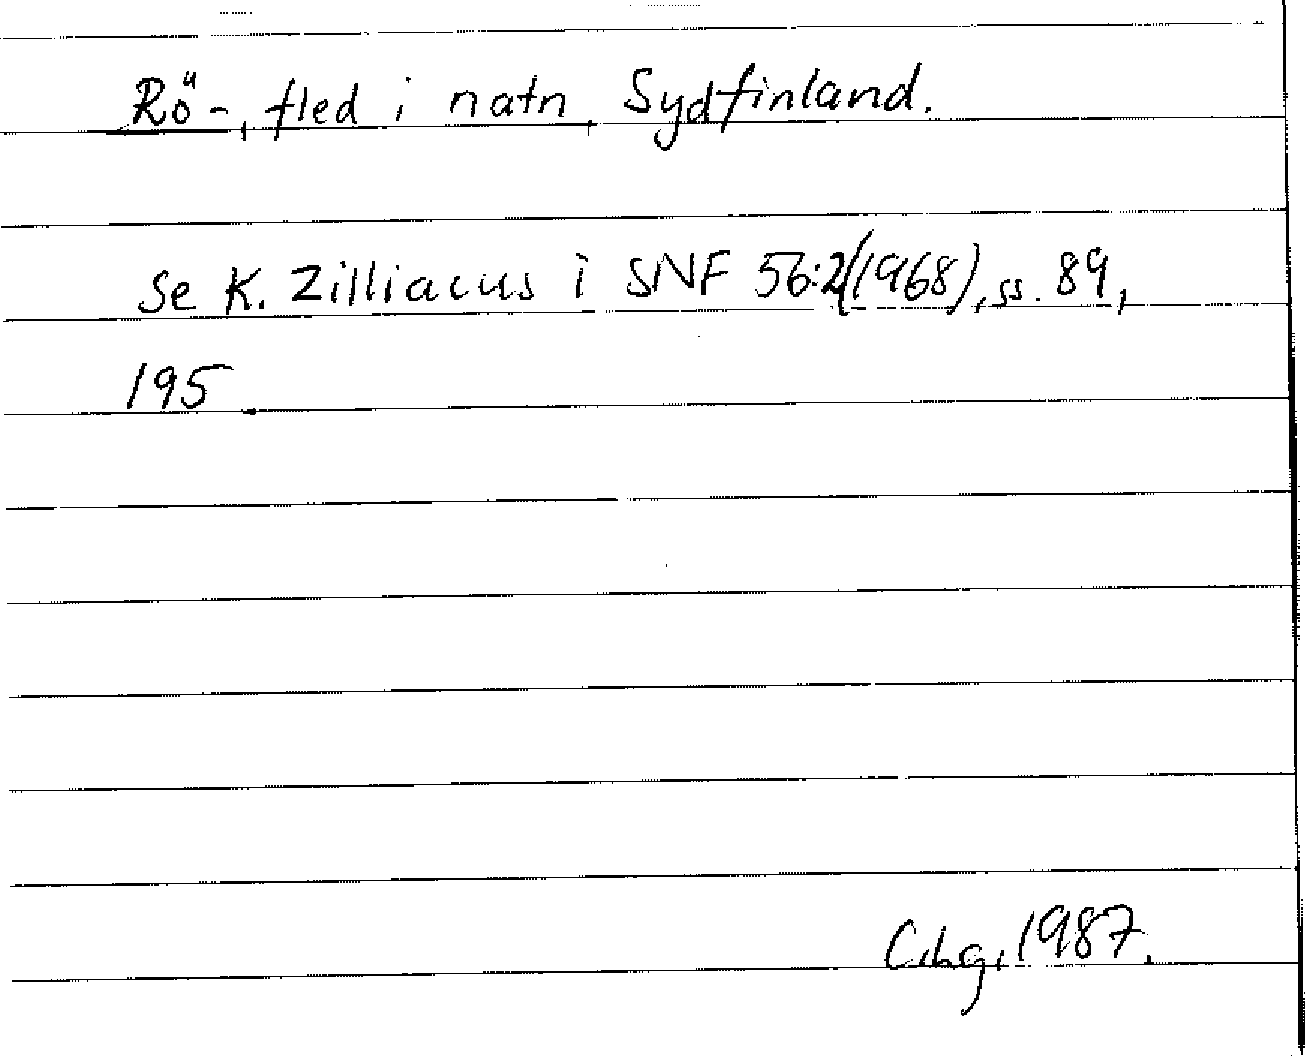 Rö-, fled i natn, Sydfinland.
Se K. Zilliacus i SNF 56:2(1968), ss. 89,
195.
C.hg, 1987.